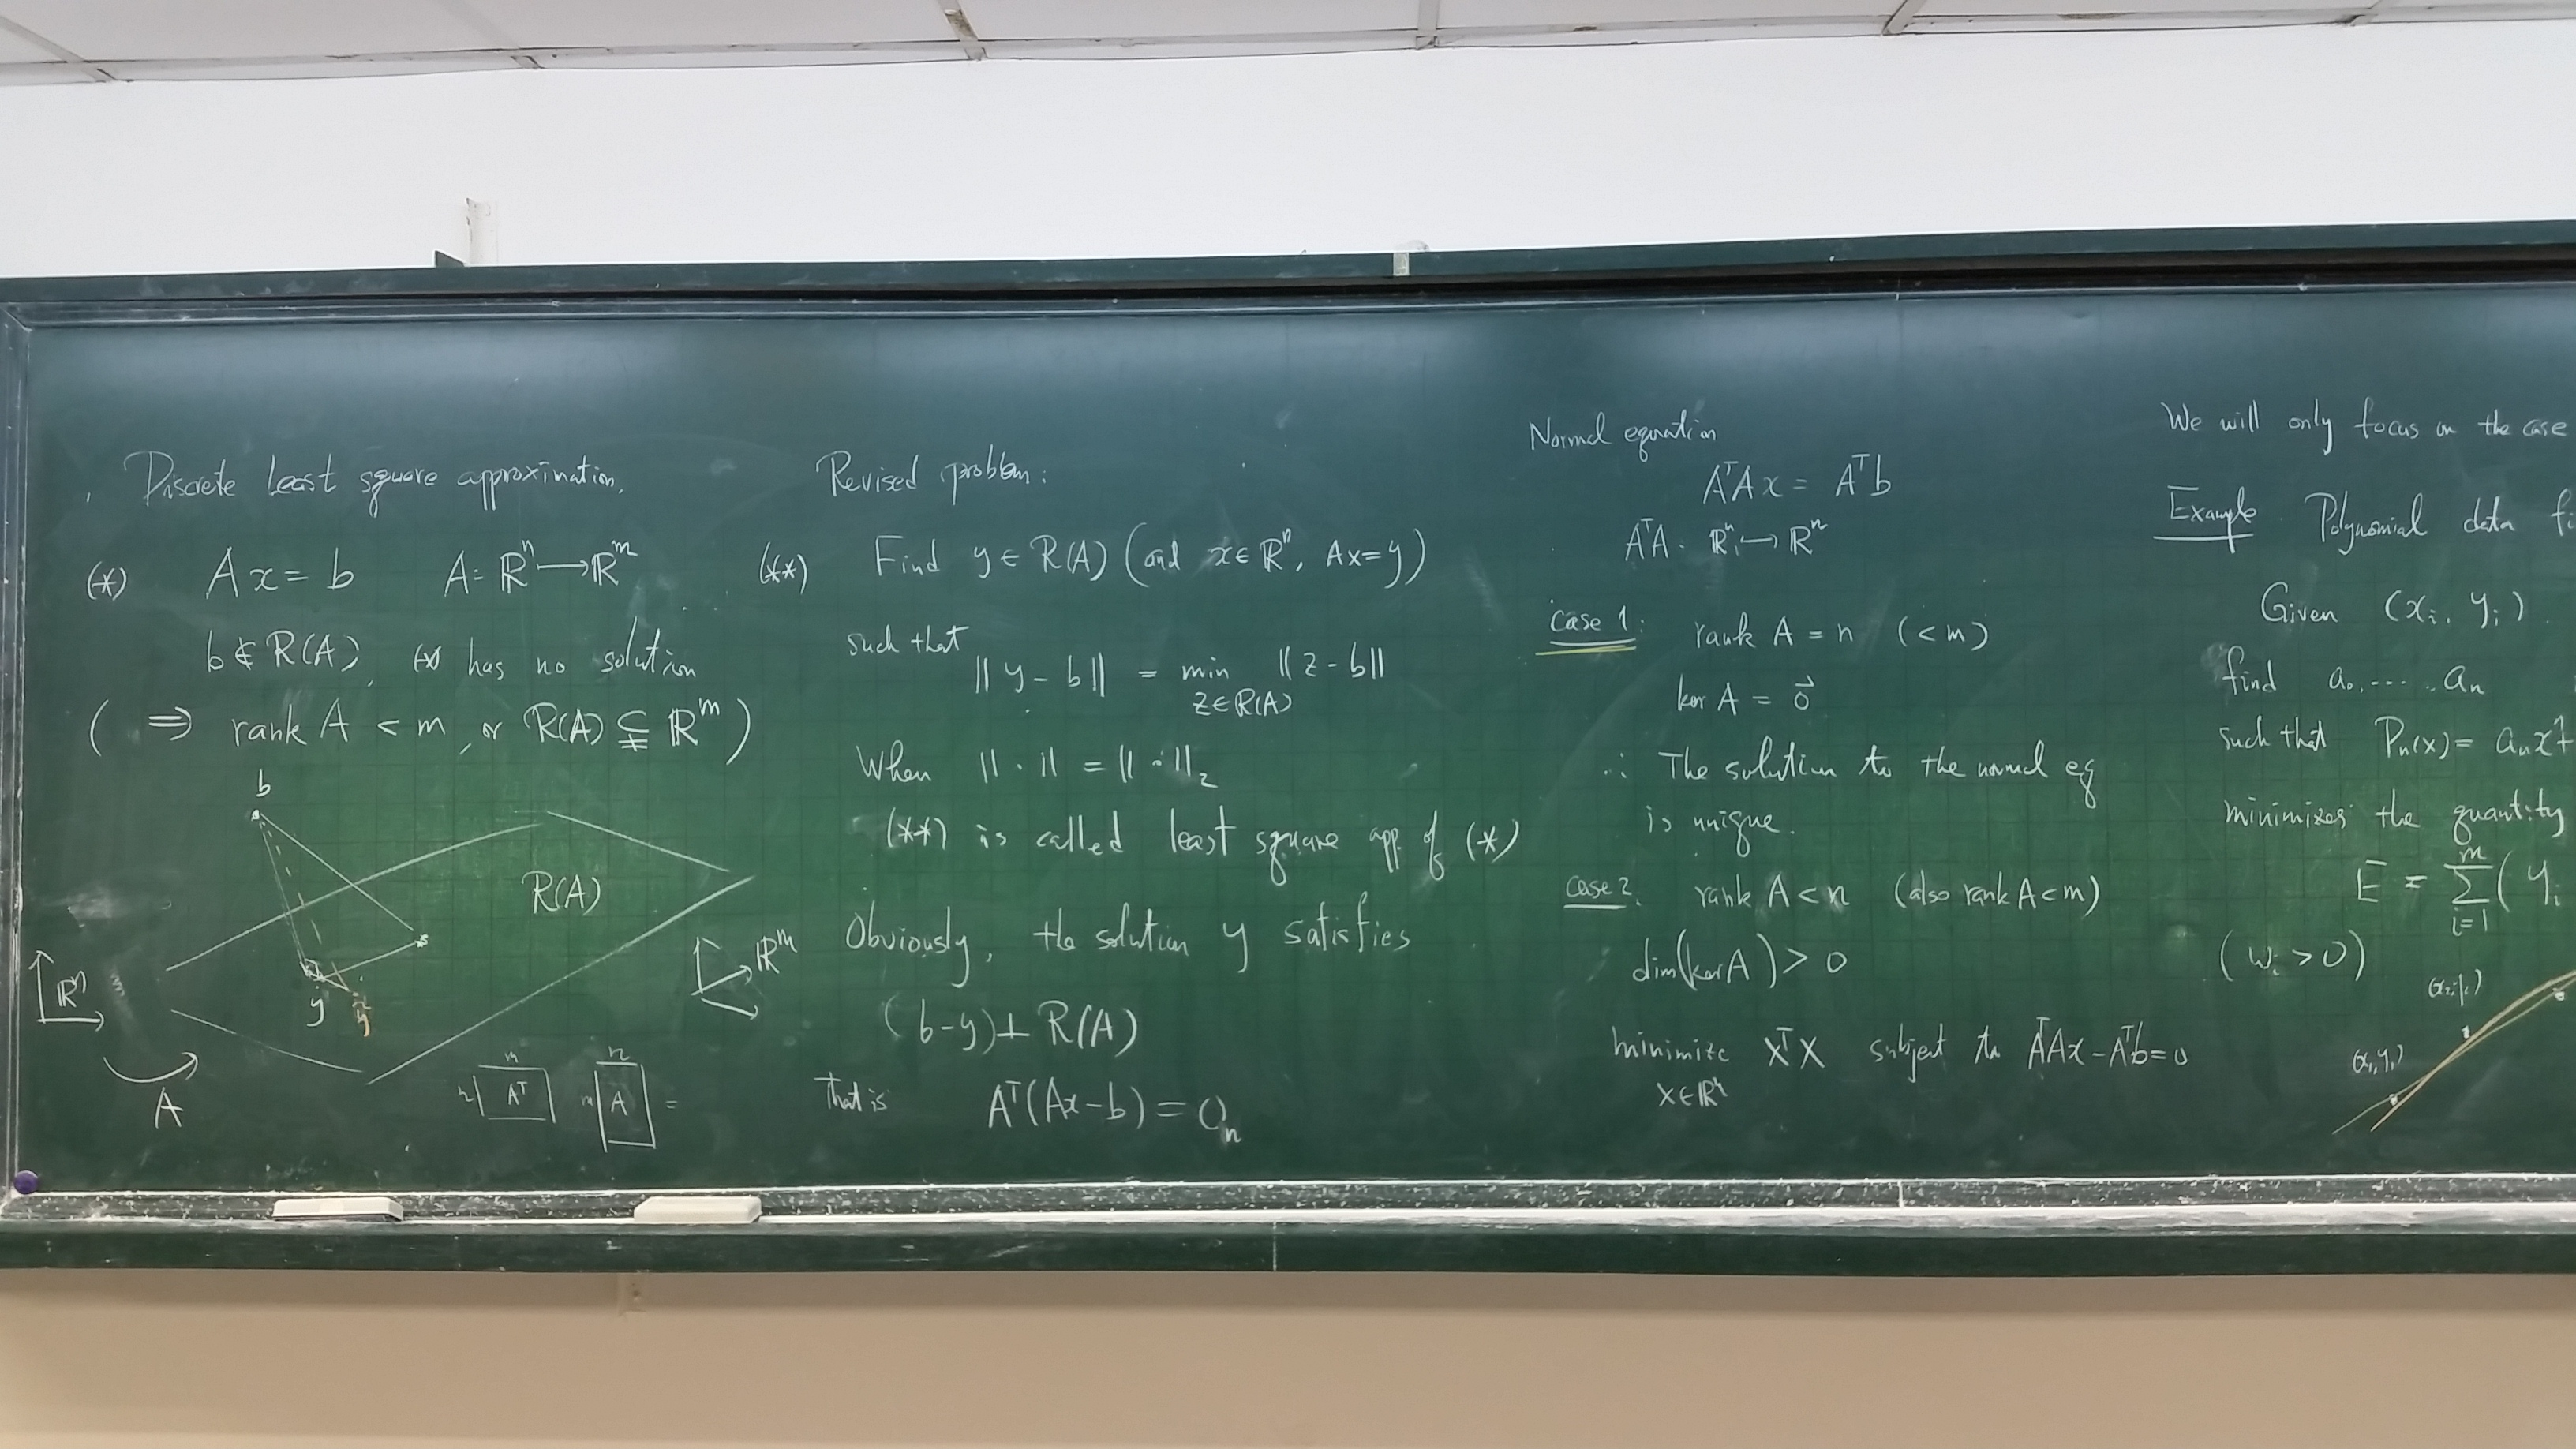 Discrete least square approximation.
(*) Ax = b A: ℝⁿ → ℝᵐ
b ∉ R(A), (*) has no solution
( ⇒ rank A < m, or R(A) ⊊ ℝᵐ )
b
R(A)
y
ỹ
ℝⁿ
ℝᵐ
A
m
n Aᵀ
n
m A =
Revised problem:
(**) Find y ∈ R(A) (and x ∈ ℝⁿ, Ax = y)
such that
‖y - b‖ = min ‖z - b‖
z ∈ R(A)
When ‖·‖ = ‖·‖₂
(**) is called least square app. of (*)
Obviously, the solution y satisfies
(b-y) ⊥ R(A)
That is Aᵀ(Ax-b) = 0ₙ
Normal equation
AᵀAx = Aᵀb
AᵀA: ℝⁿ → ℝⁿ
case 1: rank A = n (< m)
ker A = 0⃗
∴ The solution to the normal eq
is unique.
case 2. rank A < n (also rank A < m)
dim(ker A) > 0
minimize xᵀx subject to AᵀAx - Aᵀb = 0
x ∈ ℝⁿ
We will only focus on the case
Example. Polynomial data fi
Given (xᵢ, yᵢ)
find a₀, ..., aₙ
such that Pₙ(x) = aₙxⁿ+
minimizes the quantity
E = Σ (yᵢ
m
i=1
(wᵢ > 0)
(x₁, y₁)